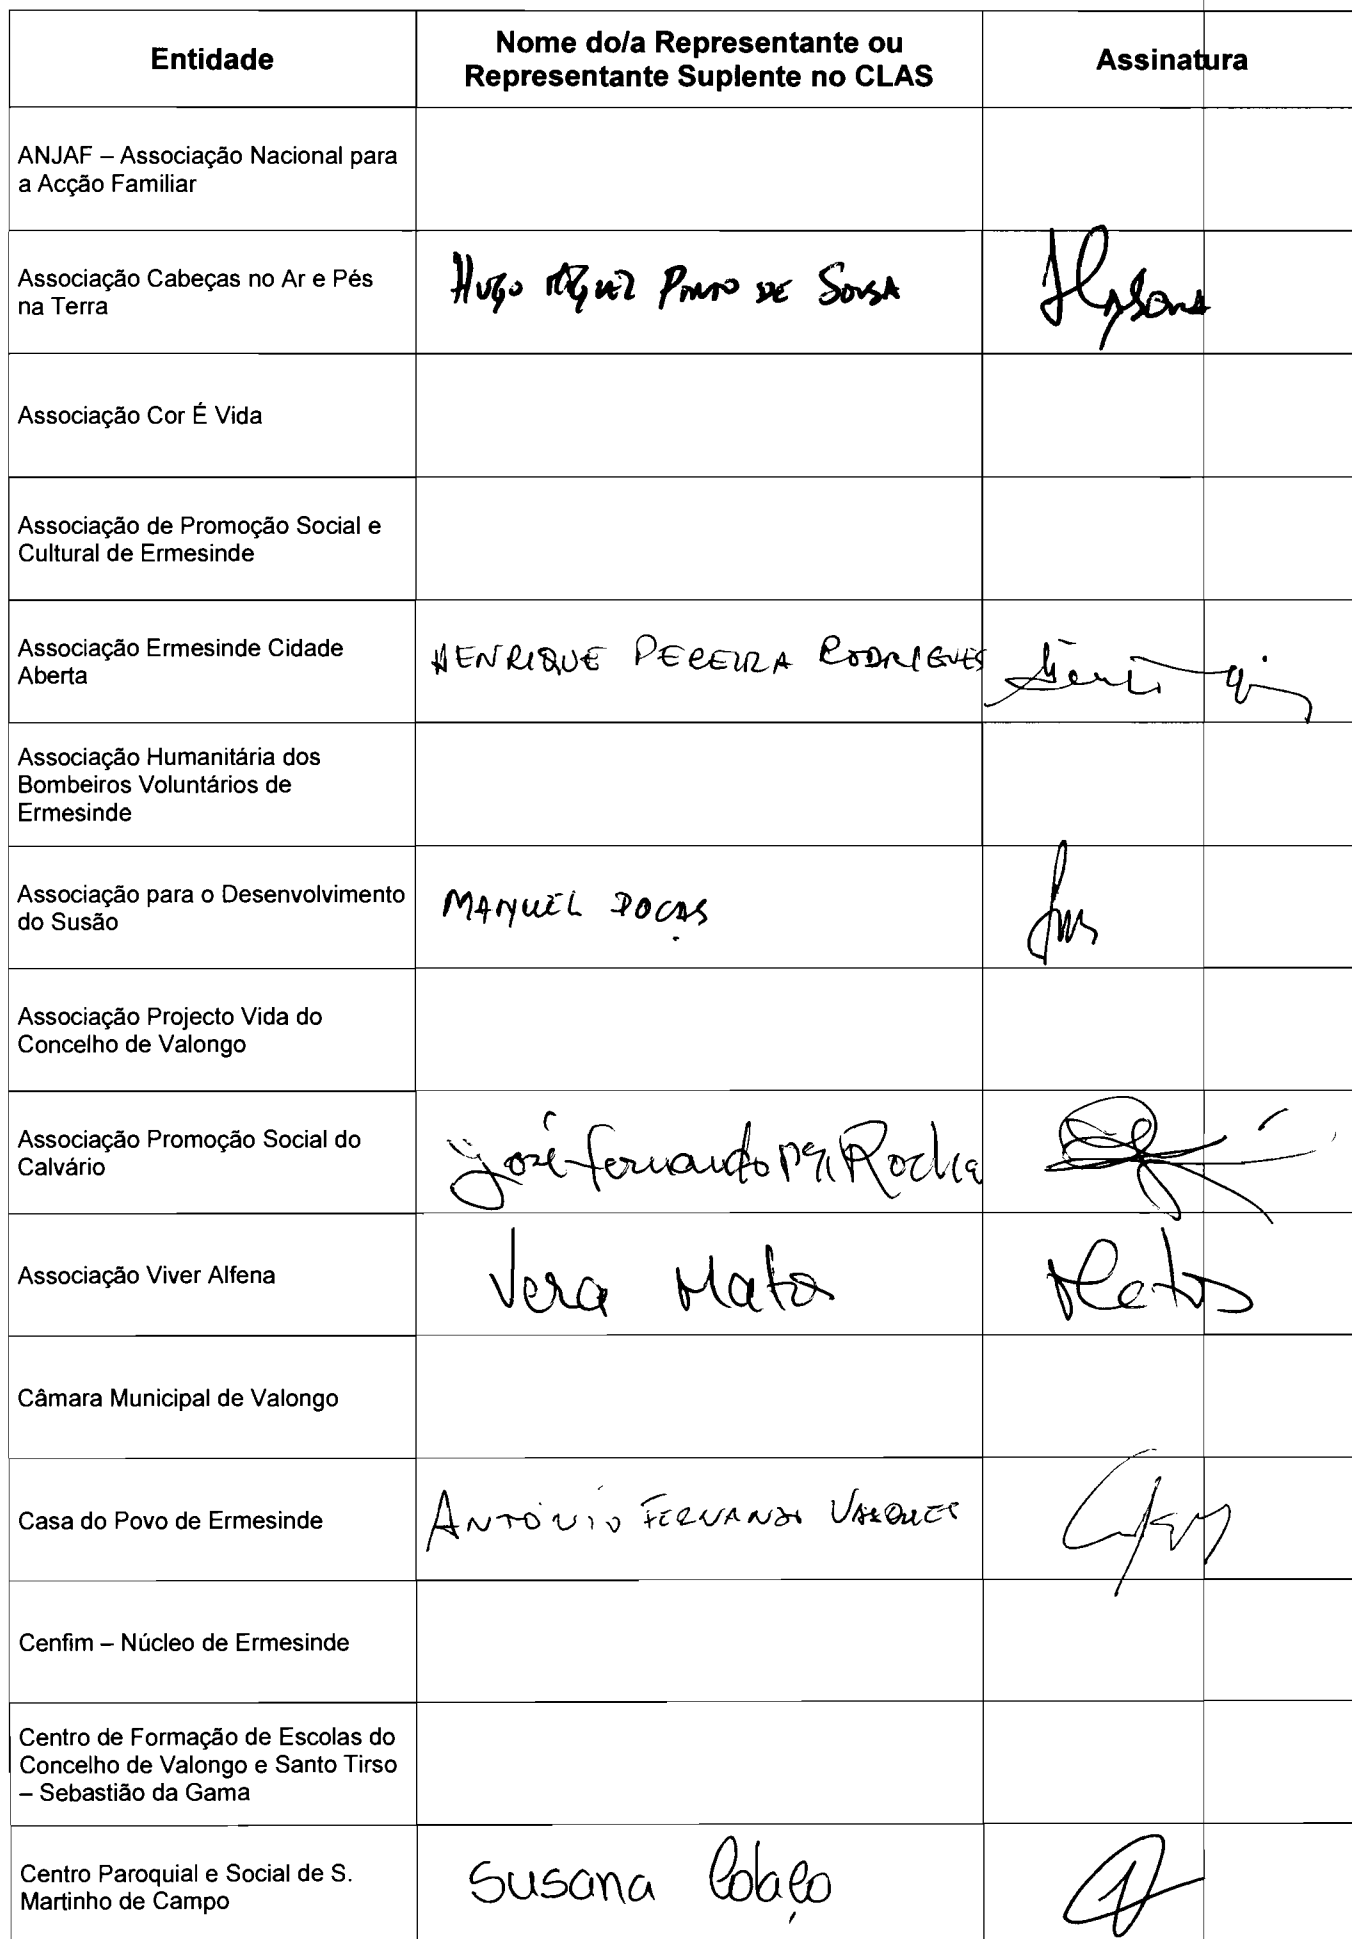 Entidade
Nome do/a Representante ou
Representante Suplente no CLAS
Assinatura
ANJAF – Associação Nacional para
a Acção Familiar
Associação Cabeças no Ar e Pés
na Terra
HUGO MIGUEL PINTO DE SOUSA
Associação Cor É Vida
Associação de Promoção Social e
Cultural de Ermesinde
Associação Ermesinde Cidade
Aberta
HENRIQUE PEREIRA RODRIGUES
Associação Humanitária dos
Bombeiros Voluntários de
Ermesinde
Associação para o Desenvolvimento
do Susão
MANUEL
Associação Projecto Vida do
Concelho de Valongo
Associação Promoção Social do
Calvário
José Fernando Rocha
Associação Viver Alfena
Vera Matos
Matos
Câmara Municipal de Valongo
Casa do Povo de Ermesinde
ANTÓNIO FERNANDO
Cenfim – Núcleo de Ermesinde
Centro de Formação de Escolas do
Concelho de Valongo e Santo Tirso
– Sebastião da Gama
Centro Paroquial e Social de S.
Martinho de Campo
Susana Colaço